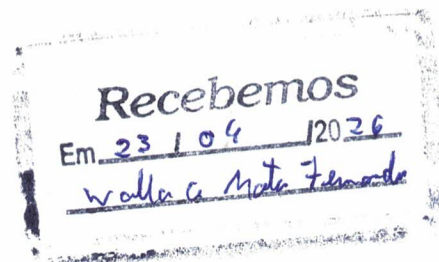 Recebemos
Em 23 / 04 /2026
Walla c Mata Fernando